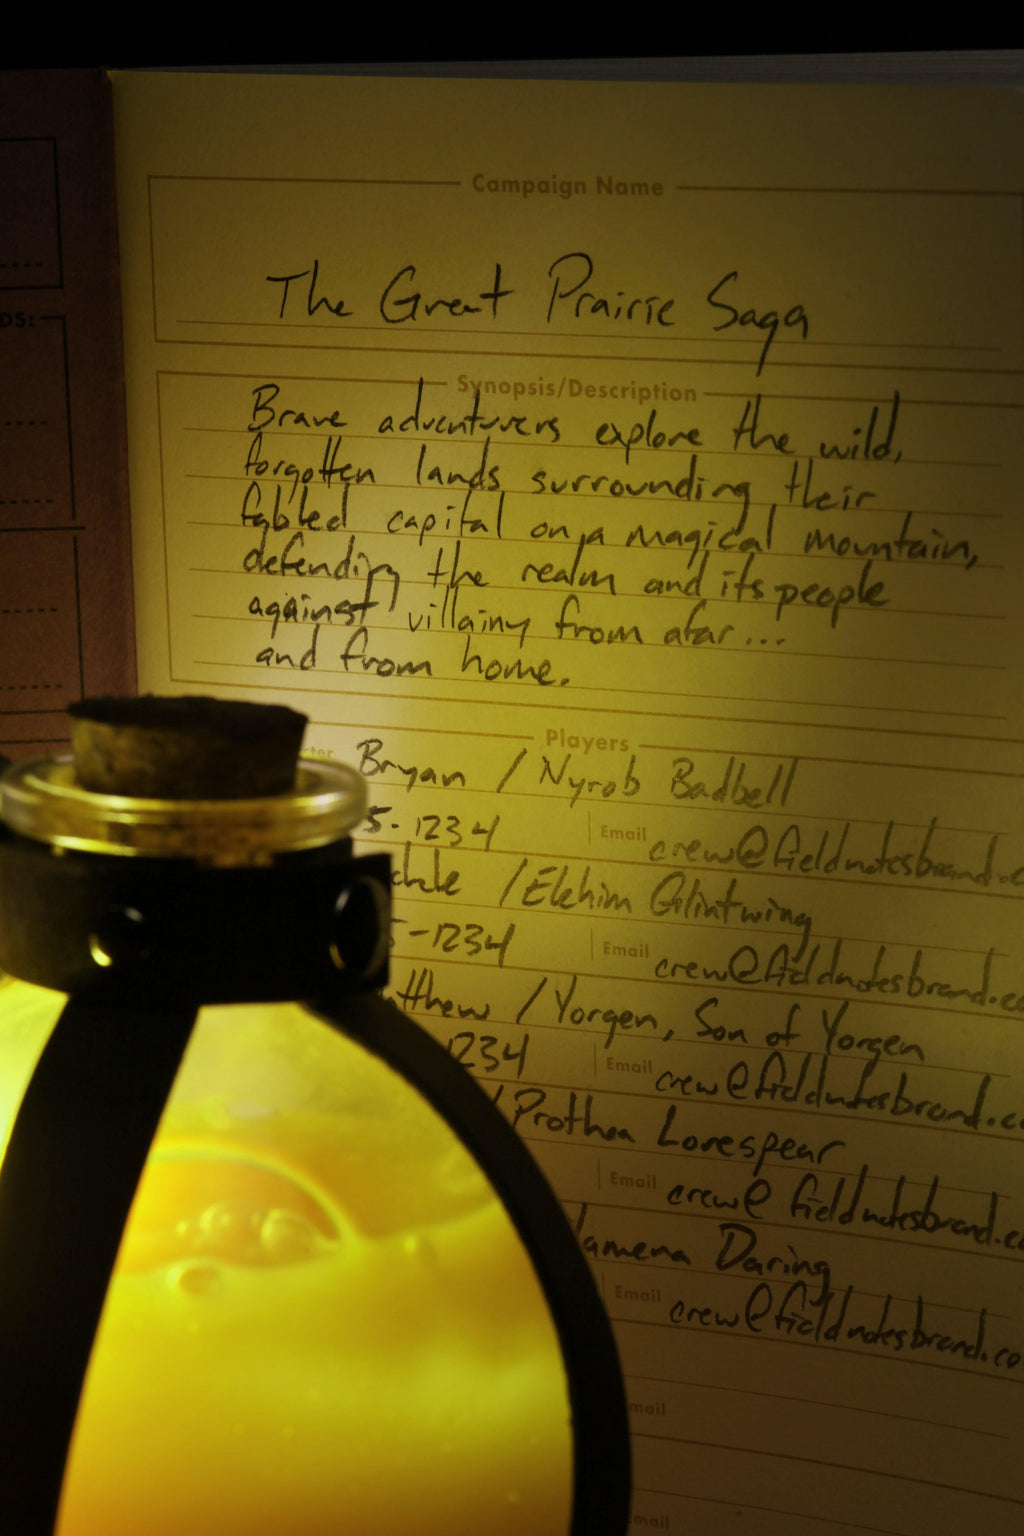 DS:
Campaign Name
The Great Prairie Saga
Synopsis/Description
Brave adventurers explore the wild,
forgotten lands surrounding their
fabled capital on a magical mountain,
defending the realm and its people
against villainy from afar...
and from home.
Players
Bryan / Nyrob Badbell
5-1234
Email crew@fieldnotesbrand.c
/ Elehim Glintwing
5-1234
Email crew@fieldnotesbrand.co
tthew / Yorgen, Son of Yorgen
1234
Email crew@fieldnotesbrand.c
/ Prothea Lorespear
Email crew@fieldnotesbrand.co
lamena Daring
Email crew@fieldnotesbrand.co
mail
mail